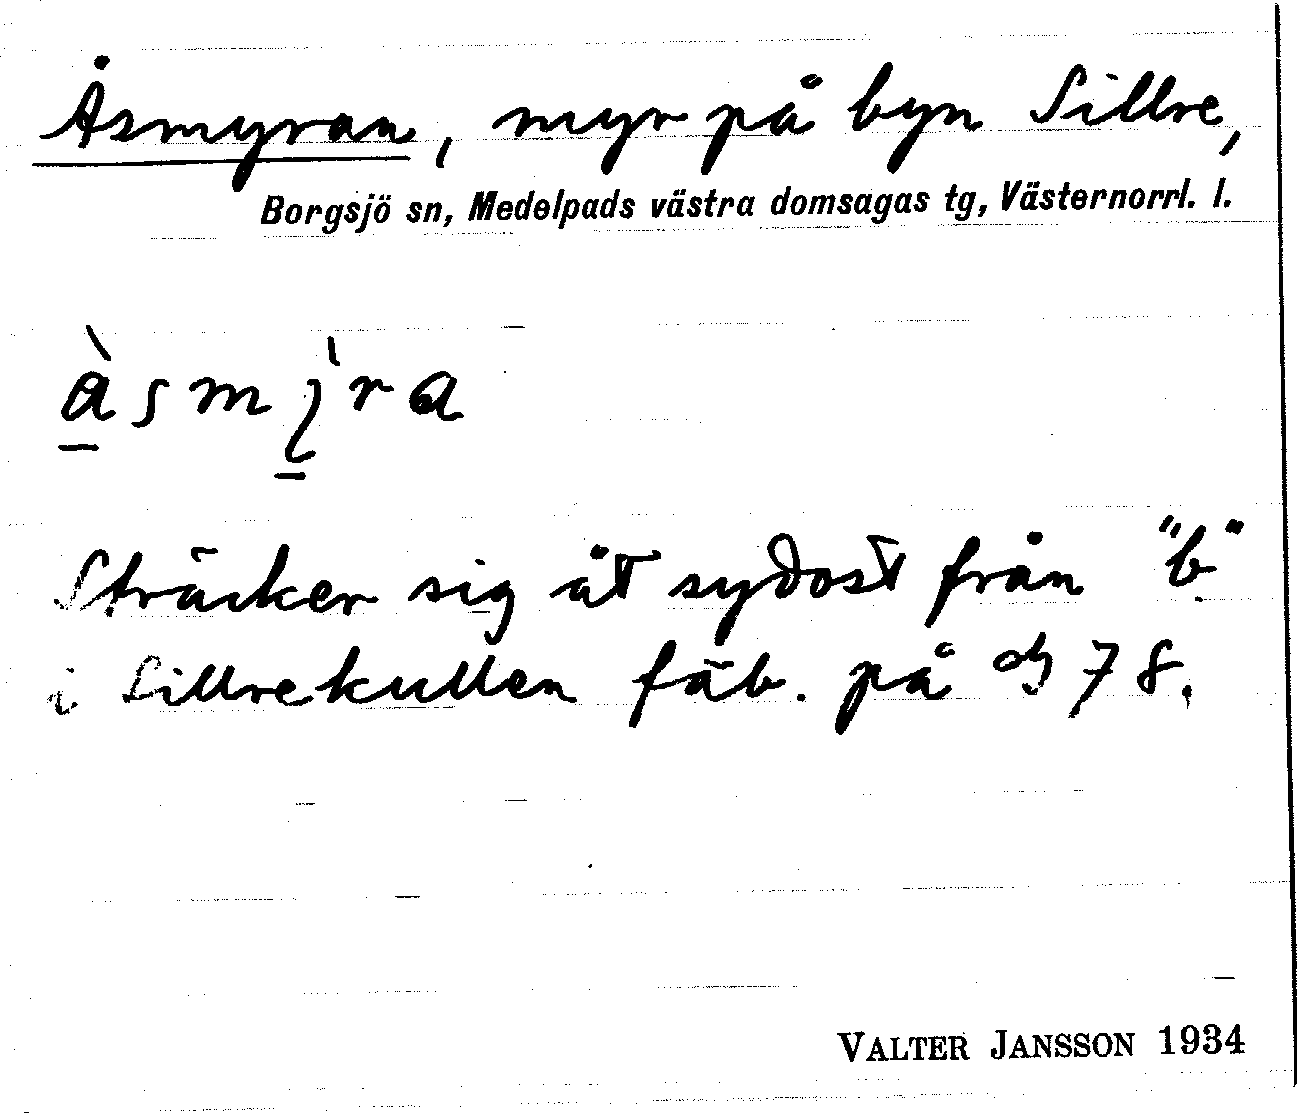 Åsmyran, myr på byn Sillre,
Borgsjö sn, Medelpads västra domsagas tg, Västernorrl. l.
Sträcker sig åt sydost från "b"
i Sillrekullen fäb. på 78.
VALTER JANSSON 1934